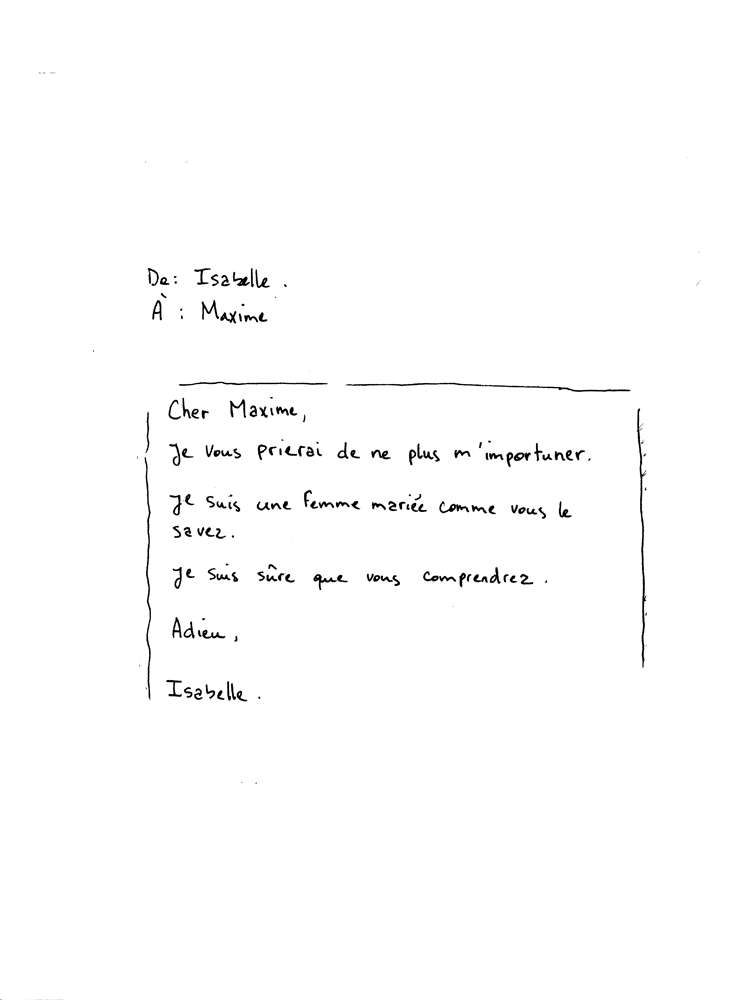 De: Isabelle.
À : Maxime
Cher Maxime,
Je vous prierai de ne plus m'importuner.
Je suis une femme mariée comme vous le
savez.
Je suis sûre que vous comprendrez.
Adieu,
Isabelle.